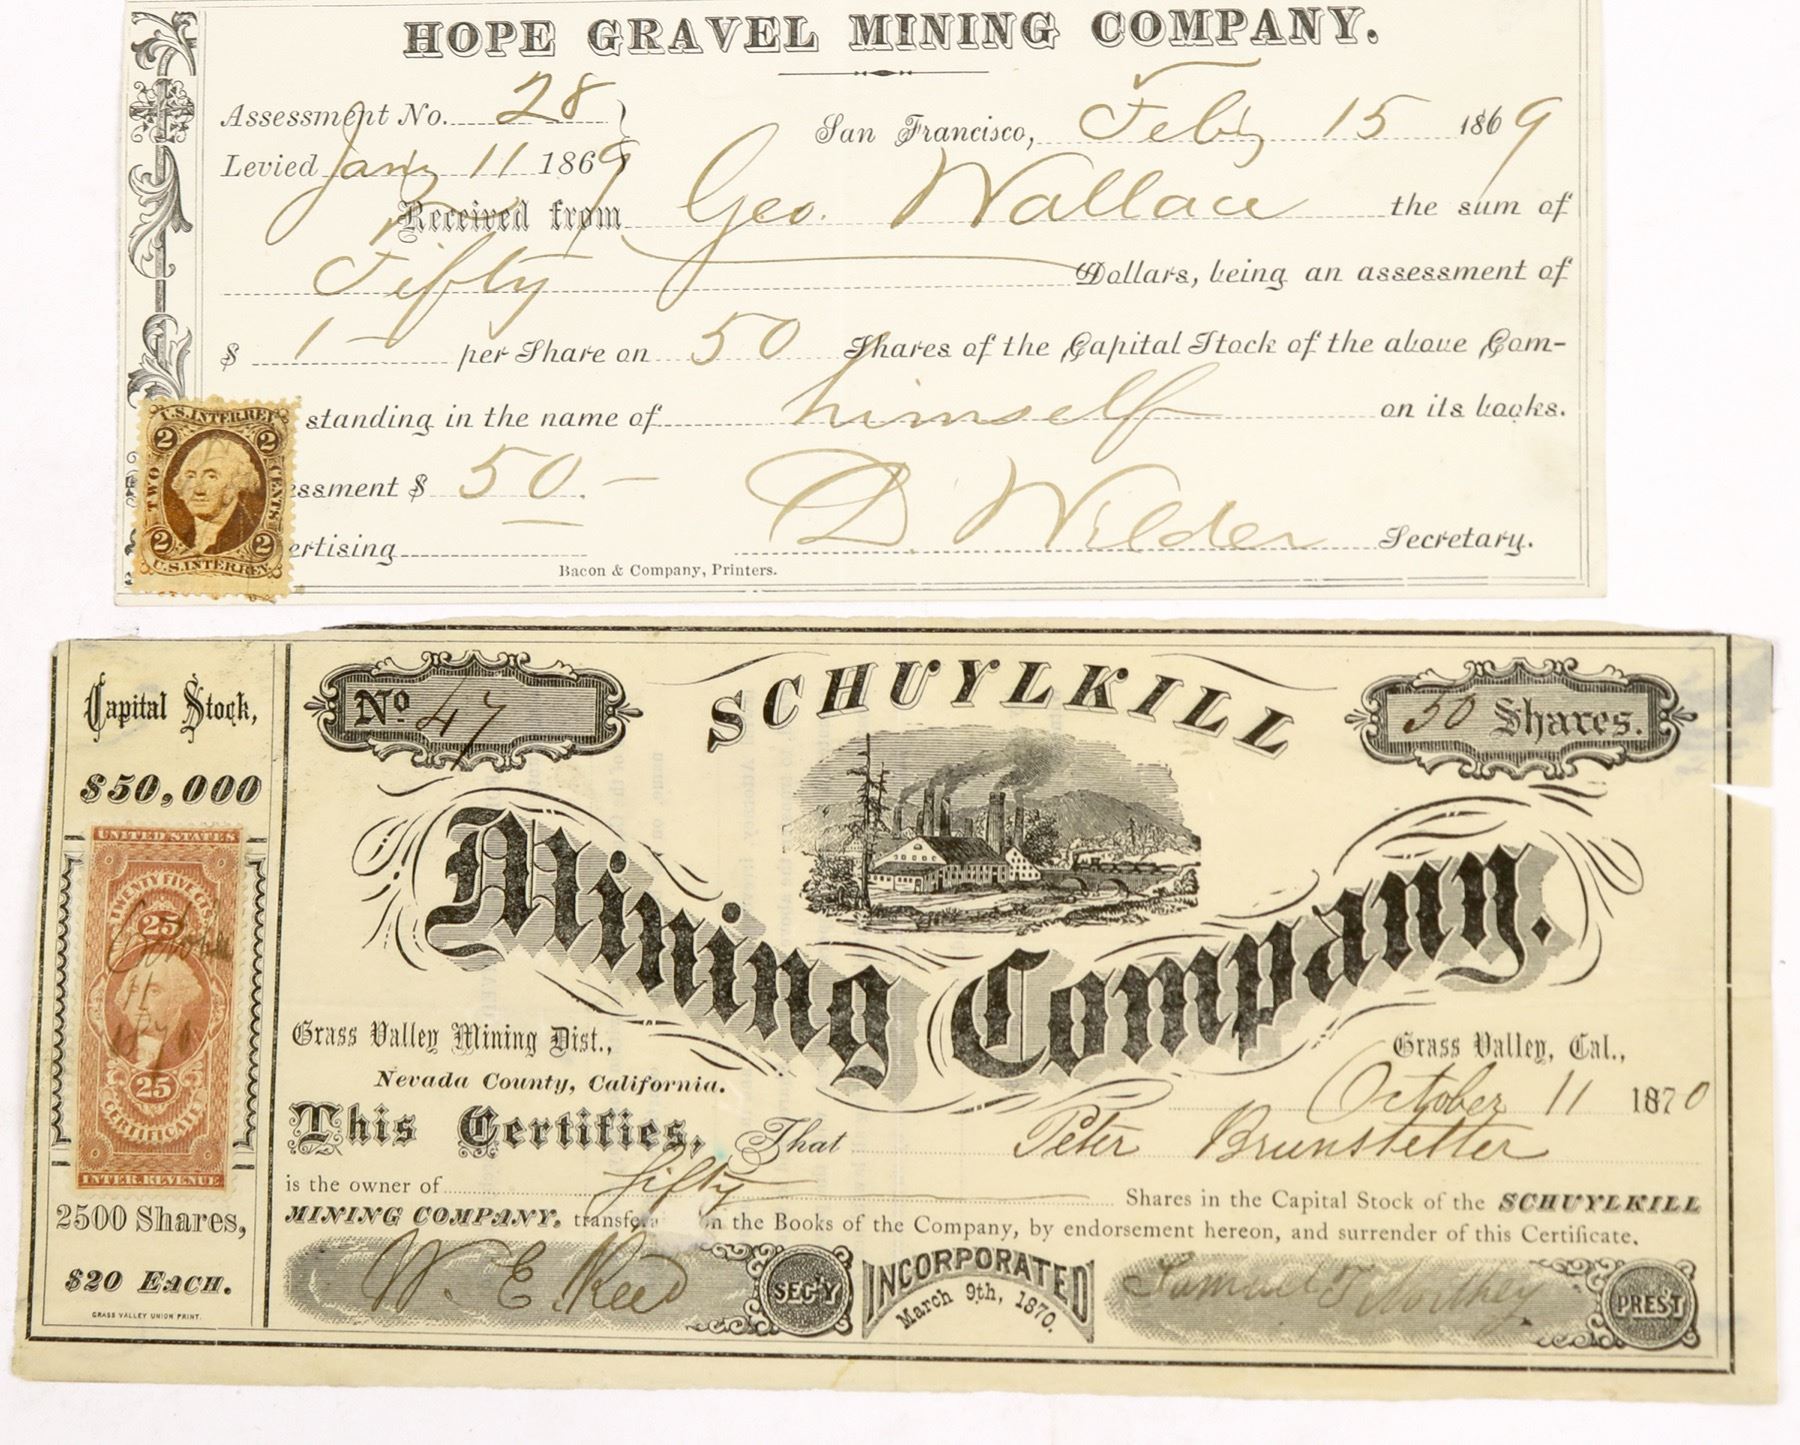 HOPE GRAVEL MINING COMPANY.
Assessment No. 28
San Francisco, Feb'y 15 1869
Levied Jan'y 11 1869
Received from Geo. Wallace the sum of
Fifty Dollars, being an assessment of
$ 1 — per Share on 50 Shares of the Capital Stock of the above Com-
standing in the name of himself on its books.
essment $ 50. —
ertising
D. Wilder Secretary.
Bacon & Company, Printers.
U.S. INTER REV
2 2
TWO CENTS
2 2
U.S. INTER REV.
Capital Stock,
$50,000
UNITED STATES
TWENTY FIVE CTS.
25
October
11
1870
25
CERTIFICATE
INTER. REVENUE
2500 Shares,
$20 EACH.
GRASS VALLEY UNION PRINT.
No. 47
SCHUYLKILL
50 Shares.
Mining Company.
Grass Valley Mining Dist.,
Nevada County, California.
Grass Valley, Cal.,
October 11 1870
This Certifies, That Peter Brunstetter
is the owner of fifty Shares in the Capital Stock of the SCHUYLKILL
MINING COMPANY, transfera on the Books of the Company, by endorsement hereon, and surrender of this Certificate.
W. E. Reed SEC'Y
INCORPORATED
March 9th, 1870.
Samuel T Northey PREST